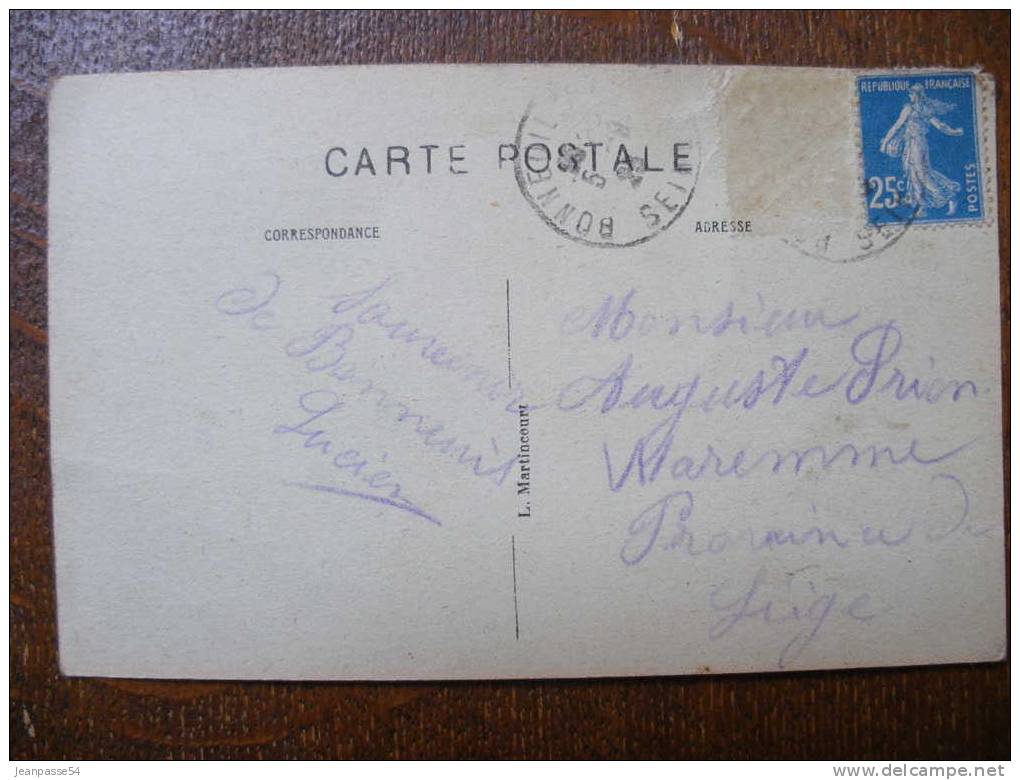 CARTE POSTALE
CORRESPONDANCE
ADRESSE
BONNEUIL
SEI
REPUBLIQUE FRANÇAISE
25c
POSTES
Souvenir
de Bonneuil
Lucien
L. Martincourt
Monsieur
Auguste Prion
Waremme
Province de
Liège
jeanpasse54
www.delcampe.net